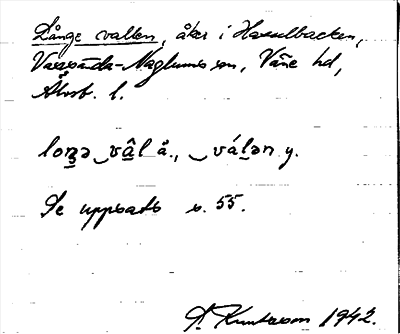 Långe vallen, åker i Hasselbacken,
Vassända-Naglums sn, Väne hd,
Älvsb. l.
loŋə ‿vâl å., ‿váḷən y.
Se uppsats s. 55.
1942.